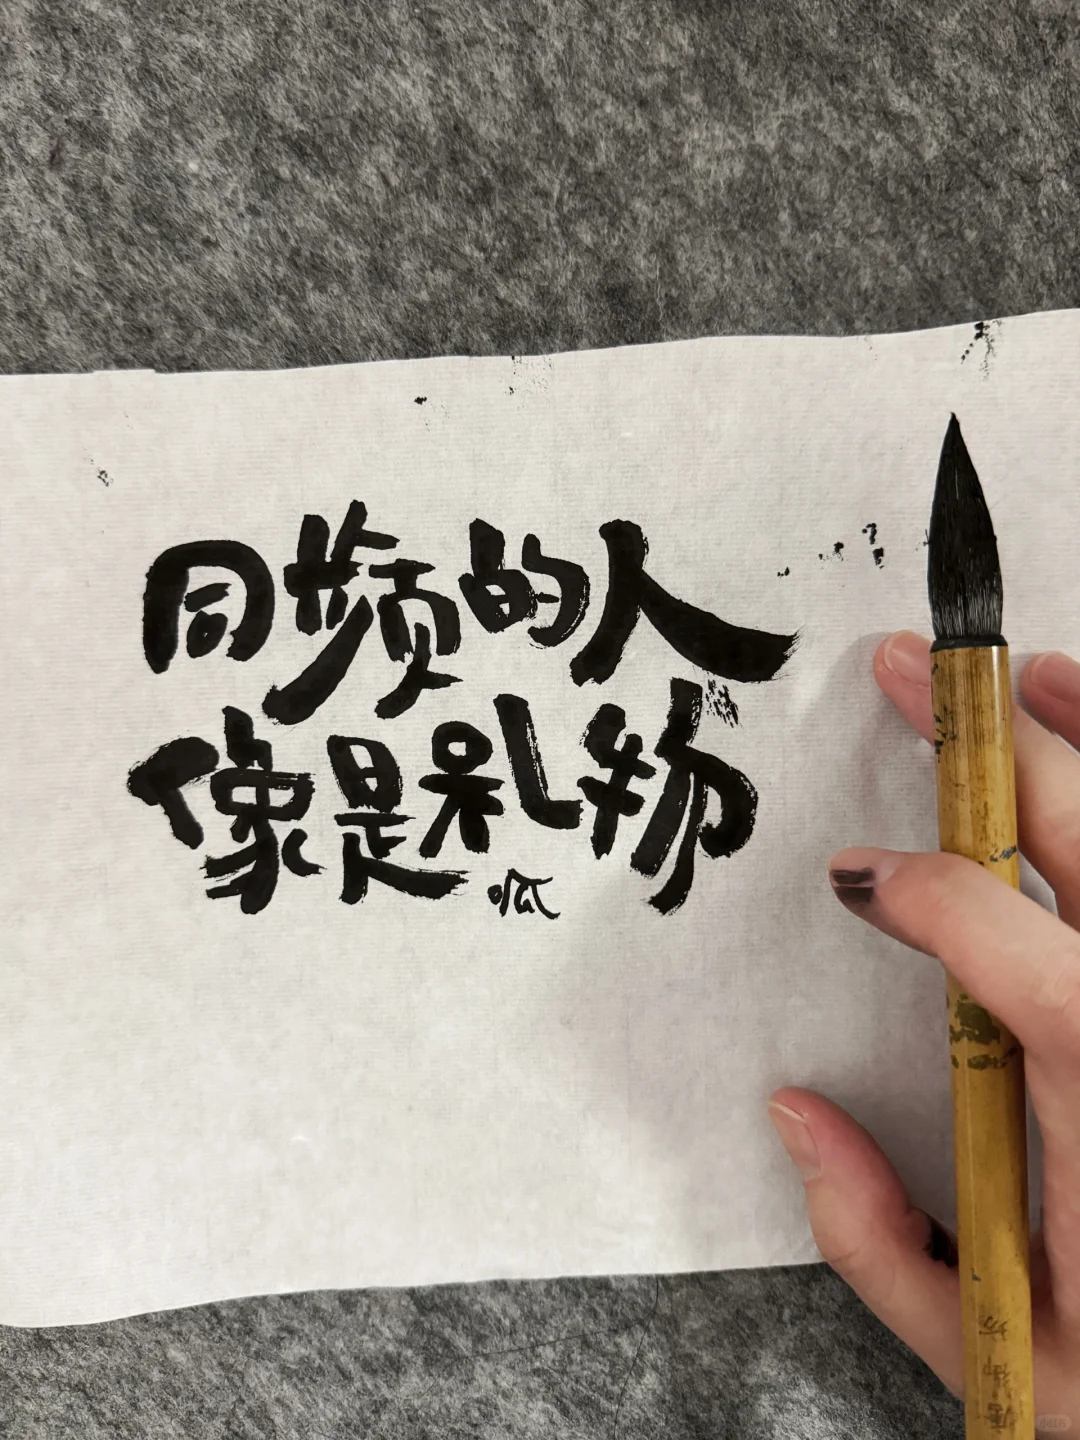 同频的人
像是礼物
呱